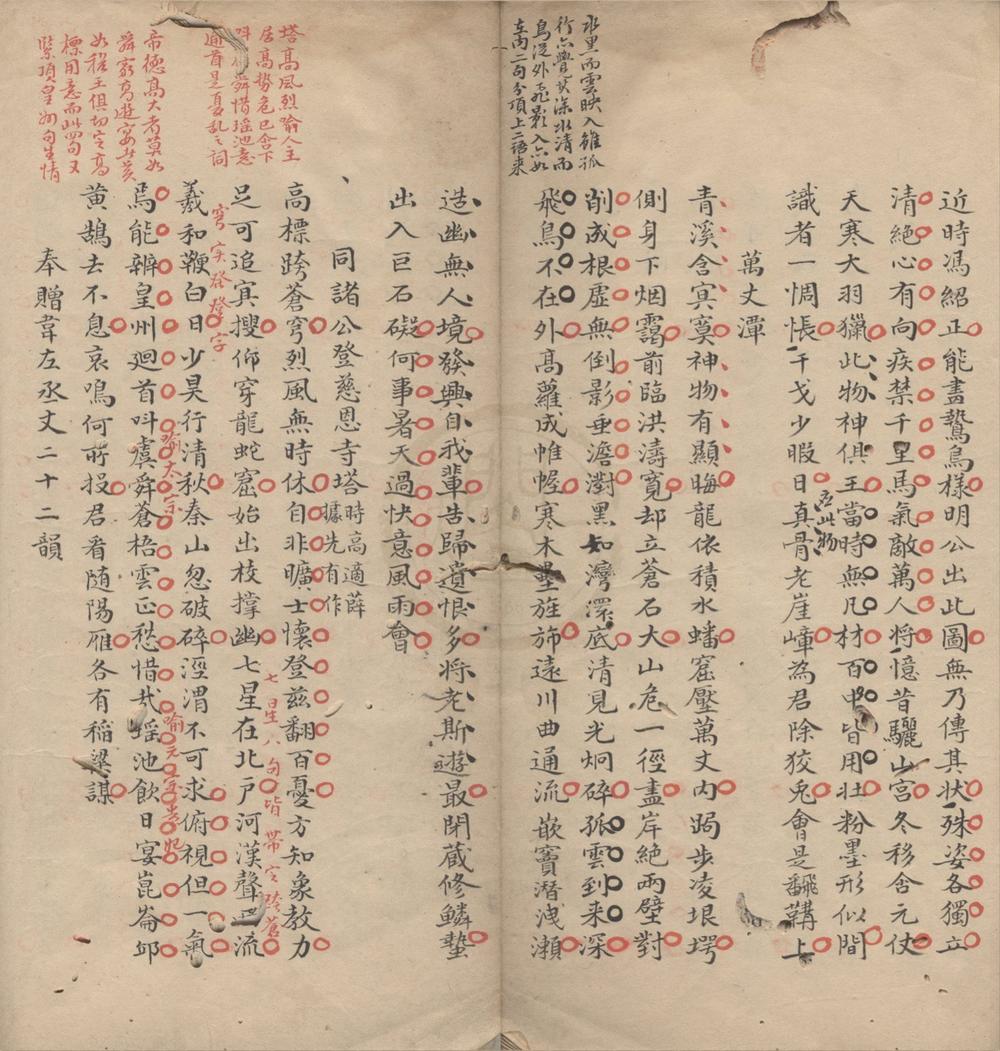 水黑而雲映入雖孤
行亦覺其深水清而
鳥從外飛影入亦如
在內二句分頂上二語来
近時馮紹正能畫鷙鳥樣明公出此圖無乃傳其状殊姿各獨立
清絕心有向疾禁千里馬氣敵萬人將憶昔驪山宮冬移含元仗
天寒大羽獵此物神俱王當時無凡材百中皆用壯粉墨形似間
識者一惆悵干戈少暇日真骨老崖嶂為君除狡兎會是飜鞲上
應此物
萬丈潭
青溪含冥寞神物有顯晦龍依積水蟠窟壓萬丈內跼步凌垠堮
側身下烟靄前臨洪濤寬却立蒼石大山危一徑盡岸絕兩壁對
削成根虛無倒影垂澹濧黑如灣澴底清見光炯碎孤雲到来深
飛鳥不在外高蘿成帷幄寒木壘旌斾遠川曲通流嵌竇潛洩瀨
造幽無人境發興自我輩告歸遺恨多將老斯遊最閉藏修鱗蟄
出入巨石礙何事暑天過快意風雨會
塔高風烈喻人主
居高勢危已含下
舜惜瑶池意
迴首是憂乱之詞
帝德高大者莫如
舜
如穆王俱切定高
標用意而此四句又
緊項皇州句生情
同諸公登慈恩寺塔時高適薛
據先有作
高標跨蒼穹烈風無時休自非曠士懷登茲翻百憂方知象教力
足可追冥搜仰穿龍蛇窟始出枝撐幽七星在北戶河漢聲西流
穹 突發登字
七星八句皆帶定跨蒼
羲和鞭白日少昊行清秋秦山忽破碎涇渭不可求俯視但一氣
焉能辨皇州廻首呌虞舜蒼梧雲正愁惜哉瑶池飲日宴崑崙邱
喻太宗
喻元宗貴妃
黃鵠去不息哀鳴何所投君看随陽雁各有稻粱謀
奉贈韋左丞丈二十二韻